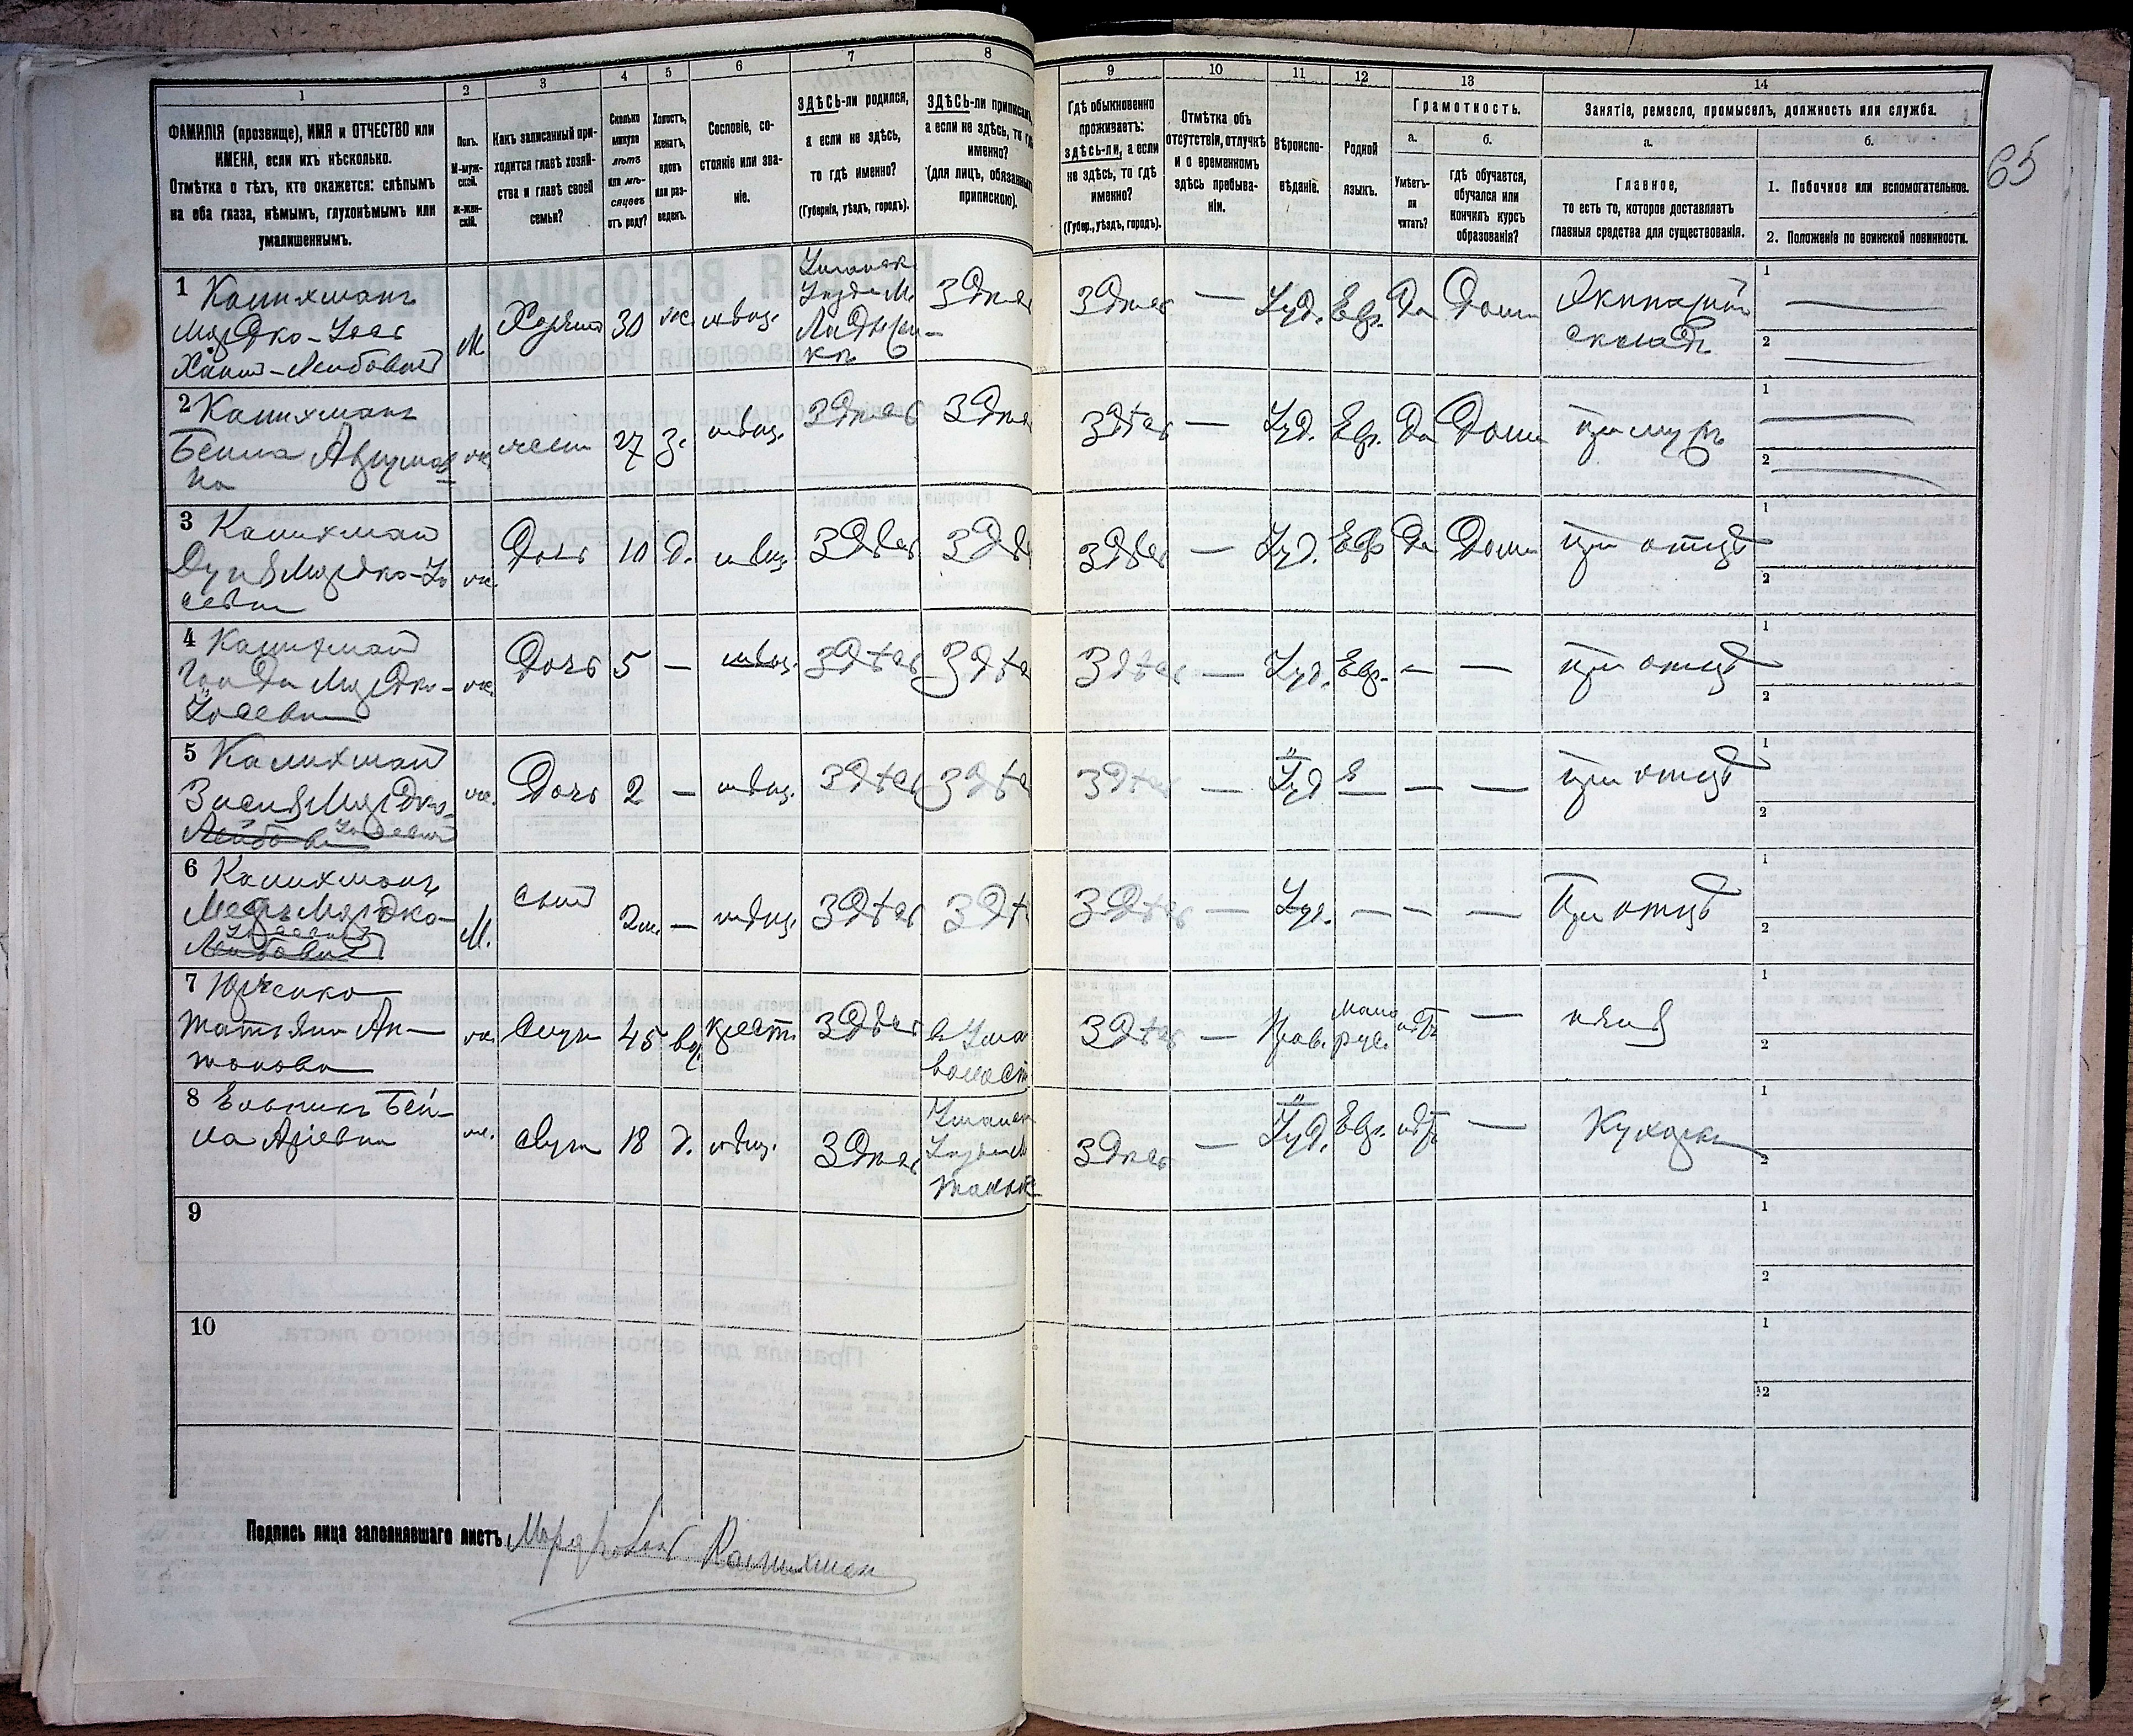 65
1
ФАМИЛІЯ (прозвище), ИМЯ и ОТЧЕСТВО или
ИМЕНА, если ихъ нѣсколько.
Отмѣтка о тѣхъ, кто окажется: слѣпымъ
на оба глаза, нѣмымъ, глухонѣмымъ или
умалишеннымъ.
2
Полъ.
М-муж-
ской.
ж-жен-
скій.
3
Какъ записанный при-
ходится главѣ хозяй-
ства и главѣ своей
семьи?
4
Сколько
минуло
лѣтъ
или мѣ-
сяцевъ
отъ роду?
5
Холостъ,
женатъ,
вдовъ
или раз-
веденъ.
6
Сословіе, со-
стояніе или зва-
ніе.
7
ЗДѢСЬ-ли родился,
а если не здѣсь,
то гдѣ именно?
(Губернія, уѣздъ, городъ).
8
ЗДѢСЬ-ли приписан
а если не здѣсь, то гд
именно?
(для лицъ, обязанных
припискою).
9
Гдѣ обыкновенно
проживаетъ:
здѣсь-ли, а если
не здѣсь, то гдѣ
именно?
(Губер., уѣздъ, городъ).
10
Отмѣтка объ
отсутствіи, отлучкѣ
и о временномъ
здѣсь пребыва-
ніи.
11
Вѣроиспо-
вѣданіе.
12
Родной
языкъ.
13
Грамотность.
а.
Умѣетъ-
ли
читать?
б.
гдѣ обучается,
обучался или
кончилъ курсъ
образованія?
14
Занятіе, ремесло, промыселъ, должность или служба.
а.
Главное,
то есть то, которое доставляетъ
главныя средства для существованія.
б.
1. Побочное или вспомогательное.
2. Положеніе по воинской повинности.
1 Калихманъ
Мордко-
Хаимъ-Лейбовичъ
М
Хозяинъ
30
мѣщ.
Здѣсь
Здѣсь
—
Іуд.
Евр.
Да
Дома
складъ
1
2
2 Калихманъ
Бейла
на
27
з.
мѣщ.
Здѣсь
Здѣсь
Здѣсь
—
Іуд.
Евр.
Да
Дома
при мужѣ
1
2
3 Калихманъ
Мордко-Іо
севна
ж.
Дочь
10
д.
мѣщ.
Здѣсь
Здѣ
Здѣсь
—
Іуд.
Евр.
Да
Дома
при отцѣ
1
2
4 Калихманъ
Мордко-
Іосевна
ж.
Дочь
5
—
мѣщ.
Здѣсь
Здѣ
Здѣсь
—
Іуд.
Евр.
—
—
при отцѣ
1
2
5 Калихманъ
Мордко-
Лейбовна Іосевна
ж.
Дочь
2
—
мѣщ.
Здѣсь
Здѣ
Здѣсь
—
Іуд
Е
—
—
при отцѣ
1
2
6 Калихманъ
Мордко-
Іосевичъ
Лейбовичъ
М.
сынъ
2м.
—
мѣщ.
Здѣсь
Здѣ
Здѣсь
—
Іуд.
—
—
—
При отцѣ
1
2
7 Юрченко
Татьяна Ан-
тонова
ж.
45
крест.
Здѣсь
в Ума
волост
Здѣсь
—
Прав.
мало
рус.
нѣтъ
—
няня
1
2
8
Бей-
ла Аріевна
ж.
18
д.
мѣщ.
Здѣсь
Уманск
Здѣсь
—
Іуд.
Евр.
нѣтъ
—
Кухарка
1
2
9
1
2
10
1
2
Подпись лица заполнявшаго листъ Калихман